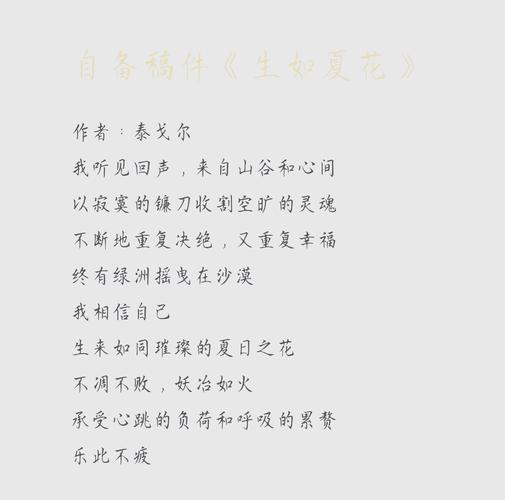 自备稿件《生如夏花》
作者：泰戈尔
我听见回声，来自山谷和心间
以寂寞的镰刀收割空旷的灵魂
不断地重复决绝，又重复幸福
终有绿洲摇曳在沙漠
我相信自己
生来如同璀璨的夏日之花
不凋不败，妖冶如火
承受心跳的负荷和呼吸的累赘
乐此不疲